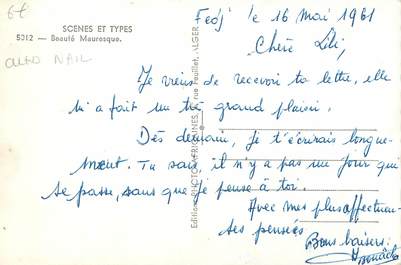 6f
SCENES ET TYPES
5012 — Beauté Mauresque.
Fedj' le 16 mai 1961
Chère Lili,
Je viens de recevoir ta lettre, elle
m'a fait un très grand plaisir.
Dès demain, je t'écrirais longue-
ment. Tu sais il n'y a pas un jour qui
se passe, sans que je pense à toi.
Avec mes plus affectueu-
ses pensées
Bons baisers.
Editions PHOTO-AFRICAINES, rue Feuillet, ALGER